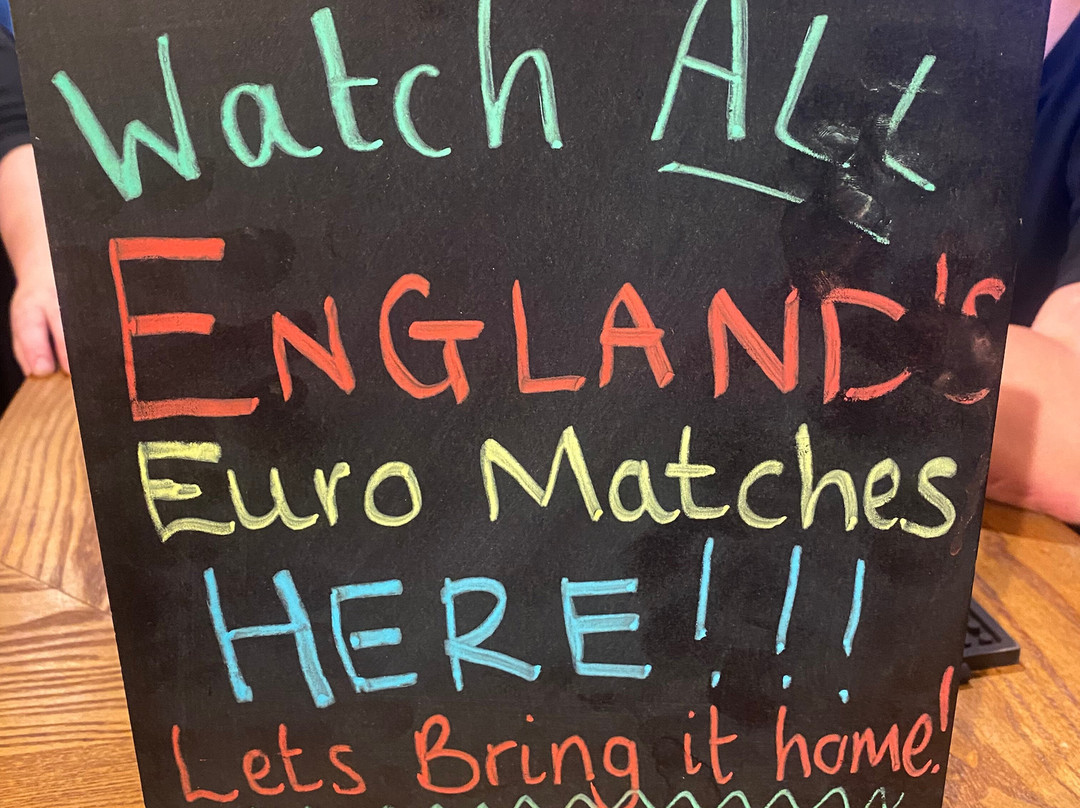 Watch ALL
ENGLAND's
Euro Matches
HERE!!!
Lets Bring it home!